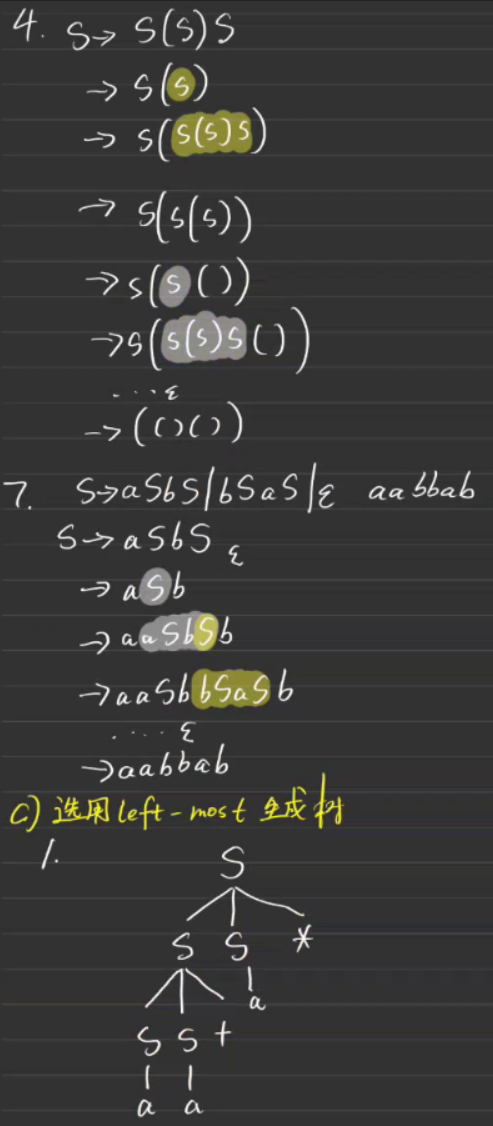 4. S→ S(S)S
→ S(S)
→ S(S(S)S)
→ S(S(S))
→ S(S())
→ S(S(S)S())
....ε
→ (()())
7. S→aSbS|bSaS|ε aabbab
S→ aSbS ε
→ aSb
→ aaSbSb
→ aaSbbSaSb
.... ε
→ aabbab
c) 选用 left-most 生成树
1.
S
S S *
a
S S +
a a